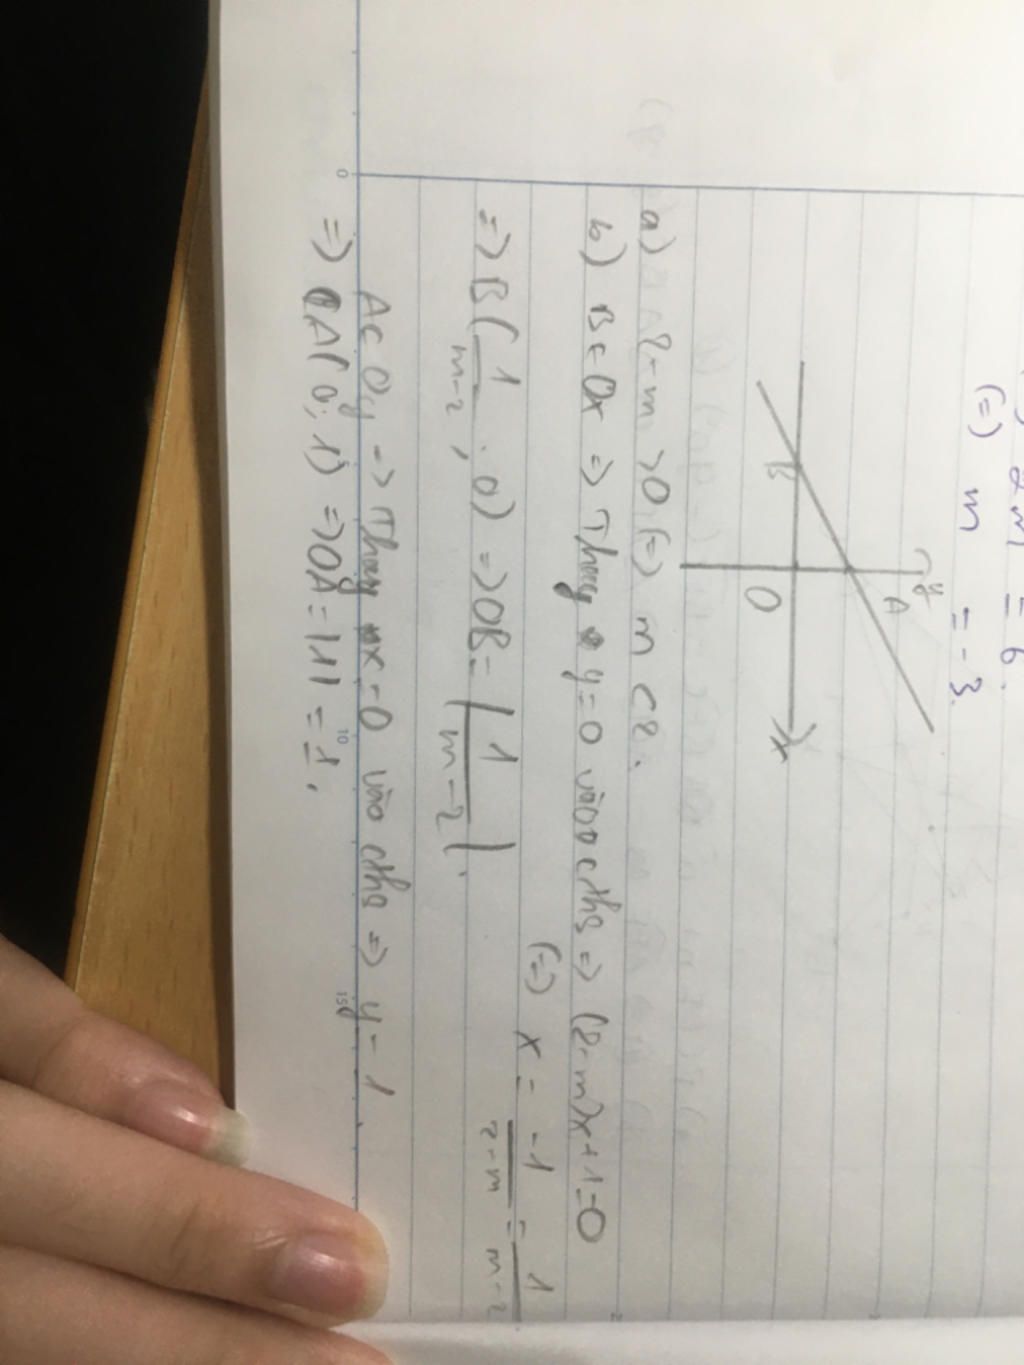 2m = 6.
(=) m = -3.
y
A
B
O
x
a) 2-m >0 (=) m < 2.
b) B ∈ Ox => Thay y=0 vào cths => (2-m)x+1=0
(=) x = -1/2-m = 1/m-2
=> B(1/m-2; 0) => OB = |1/m-2|.
A ∈ Oy => Thay x=0 vào cths => y=1.
=> A(0; 1) => OA = |1| = 1.
0
10
15